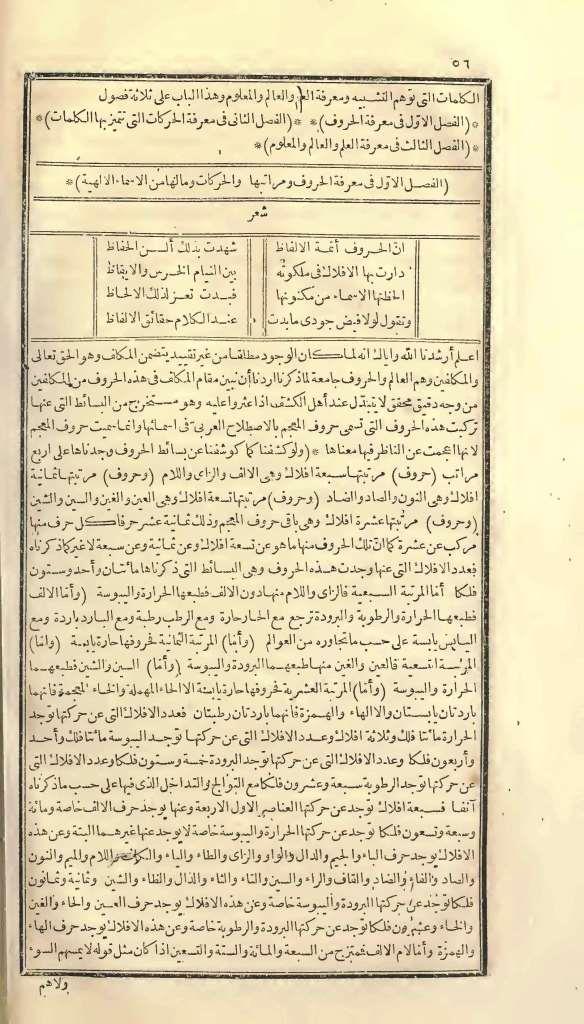 ٥٦
الكلمات التى توهم التشبيه ومعرفة العلم والعالم والمعلوم وهذا الباب على ثلاثة فصول
*(الفصل الاول فى معرفة الحروف)* *(الفصل الثانى فى معرفة الحركات التى تتميز بها الكلمات)*
*(الفصل الثالث فى معرفة العلم والعالم والمعلوم)*
(الفصل الاول فى معرفة الحروف ومراتبها والحركات ومالها من الاسماء الالهية)*
شعر
ان الحروف أئمة الالفاظ شهدت بذلك ألسن الحفاظ
دارت بها الافلاك فى ملكوته بين النيام الخرس والايقاظ
الحظنها الاسماء من مكنونها فبدت تعز لذلك الالحاظ
وتقول لولا فيض جودى مابدت عند الكلام حقائق الالفاظ
اعلم أرشدنا الله واياك انه لما كان الوجود مطلقا من غير تقييد يتضمن المكلف وهو الحق تعالى
والمكلفين وهم العالم والحروف جامعة لما ذكرنا اردنا أن نبين مقام المكلف فى هذه الحروف من المكلفين
من وجه دقيق محقق لا يتبدل عند أهل الكشف اذا عثروا عليه وهو مستخرج من البسائط التى عنها
تركبت هذه الحروف التى تسمى حروف المعجم بالاصطلاح العربى فى اسمائها وانما سميت حروف المعجم
لانها اعجمت عن الناظر فيها معناها *(ولو كشفنا كما كوشفنا عن بسائط الحروف وجدناها على اربع
مراتب (حروف) مرتبتها سبعة افلاك وهى الالف والزاى واللام (وحروف) مرتبتها ثمانية
افلاك وهى النون والصاد والضاد (وحروف) مرتبتها تسعة افلاك وهى العين والغين والسين والشين
(وحروف) مرتبتها عشرة افلاك وهى باقى حروف المعجم وذلك ثمانية عشر حرفا كل حرف منها
مركب عن عشرة كما ان تلك الحروف منها ماهو عن تسعة افلاك وعن ثمانية وعن سبعة لاغير كما ذكرناه
فعدد الافلاك التى عنها وجدت هذه الحروف وهى البسائط التى ذكرناها مائتان وأحد وستون
فلكا أما المرتبة السبعية فالزاى واللام منها دون الالف فطبعها الحرارة واليبوسة (وأما الالف
فطبعها الحرارة والرطوبة والبرودة ترجع مع الحار حارة ومع الرطب رطبة ومع البارد باردة ومع
اليابس يابسة على حسب ماتجاوره من العوالم (وأما) المرتبة الثمانية فحروفها حارة يابسة (وأما)
المرتبة التسعية فالعين والغين منها طبعهما البرودة واليبوسة (وأما) السين والشين فطبعهما
الحرارة واليبوسة (وأما) المرتبة العشرية فحروفها حارة يابسة الا الحاء المهملة والخاء المعجمة فانهما
باردتان يابستان والا الهاء والهمزة فانهما باردتان رطبتان فعدد الافلاك التى عن حركتها توجد
الحرارة مائتا فلك وثلاثة افلاك وعدد الافلاك التى عن حركتها توجد اليبوسة مائتا فلك وأحد
وأربعون فلكا وعدد الافلاك التى عن حركتها توجد البرودة خمسة وستون فلكا وعدد الافلاك التى
عن حركتها توجد الرطوبة سبعة وعشرون فلكا مع التوالج والتداخل الذى فيها على حسب ما ذكرناه
آنفا فسبعة افلاك توجد عن حركتها العناصر الاول الاربعة وعنها يوجد حرف الالف خاصة ومائة
وسبعة وتسعون فلكا توجد عن حركتها الحرارة واليبوسة خاصة لايوجد عنها غيرهما البتة وعن هذه
الافلاك يوجد حرف الباء والجيم والدال والواو والزاى والطاء والياء والكاف واللام والميم والنون
والصاد والفاء والضاد والقاف والراء والسين والتاء والثاء والذال والظاء والشين وثمانية وثمانون
فلكا توجد عن حركتها البرودة واليبوسة خاصة وعن هذه الافلاك يوجد حرف العين والحاء والغين
والخاء وعشرون فلكا توجد عن حركتها البرودة والرطوبة خاصة وعن هذه الافلاك يوجد حرف الهاء
والهمزة وأما لام الالف فممتزج من السبعة والمائة والستة والتسعين اذا كان مثل قوله لا يمسهم السوء
ولاهم